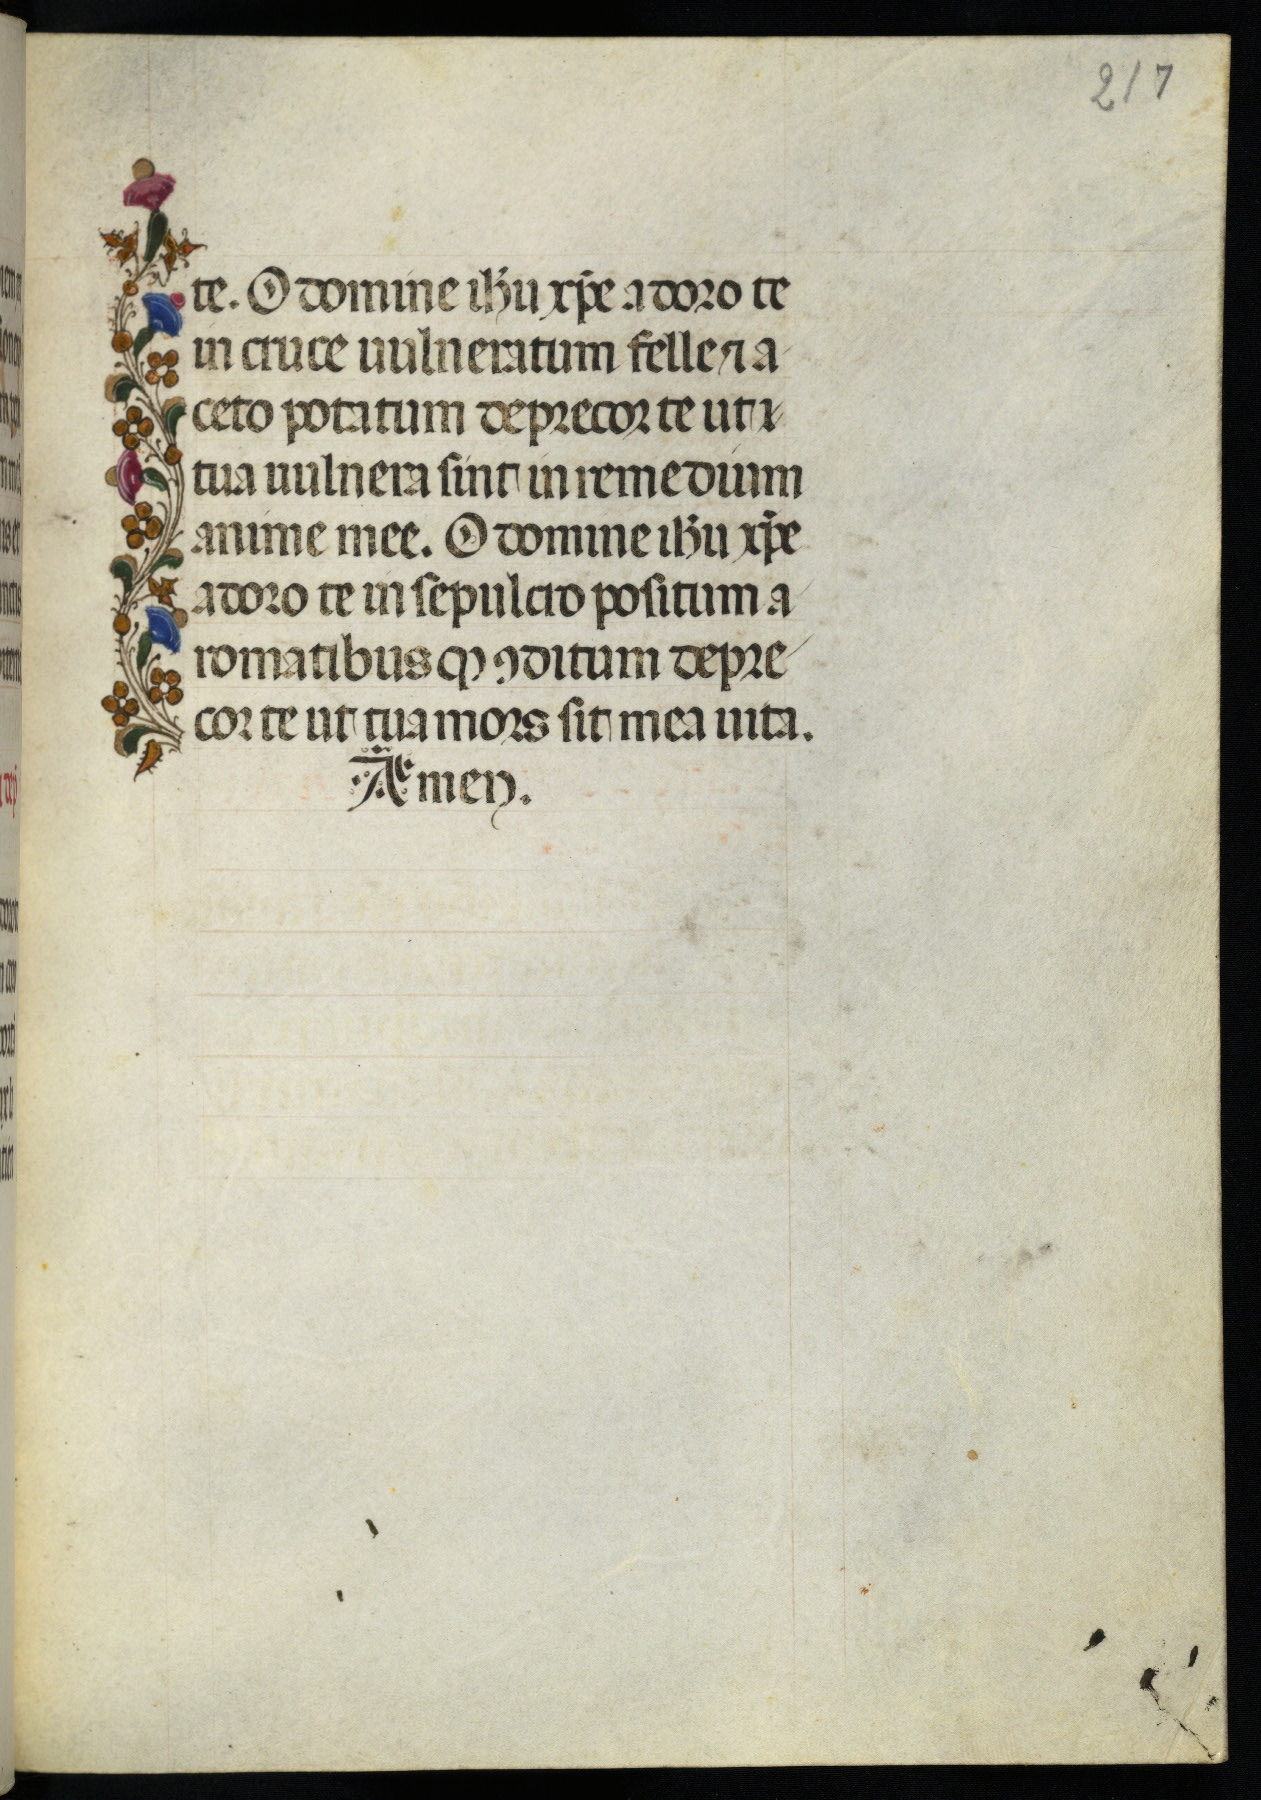 217
te. O domine ihu xpe adoro te
in cruce uulneratum felle ⁊ a
ceto potatum deprecor te ut
tua uulnera sint in remedium
anime mee. O domine ihu xpe
adoro te in sepulcro positum a
romatibus ꝯditum depre
cor te ut tua mors sit mea uita.
Amen.